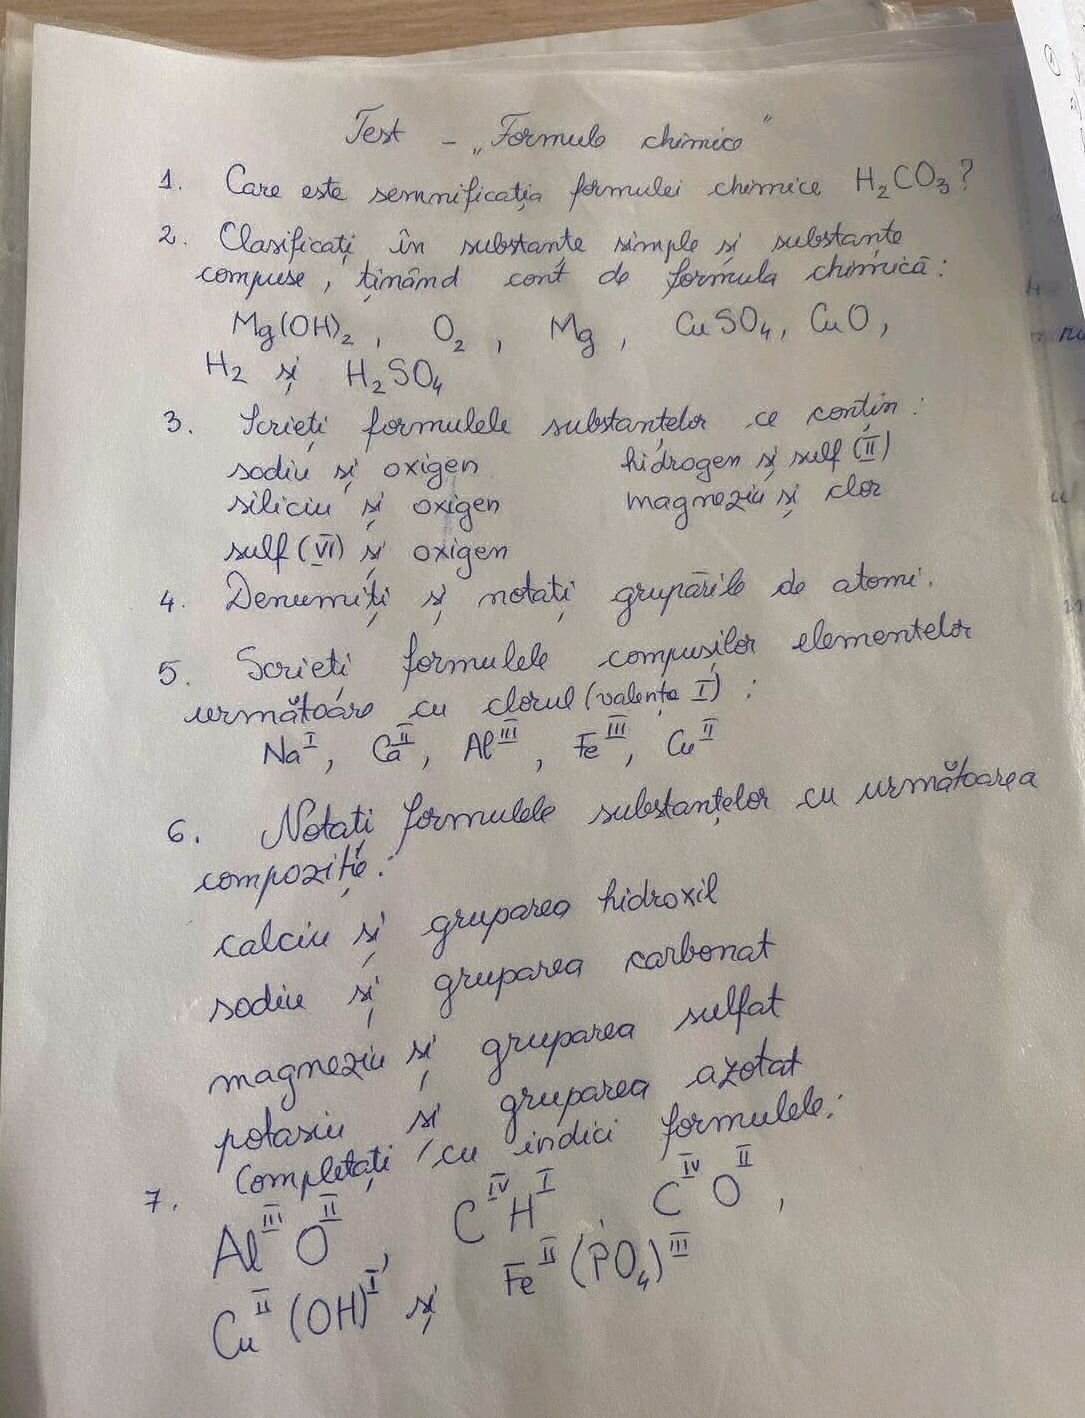 Test - „Formule chimice"
1. Care este semnificația formulei chimice H₂CO₃?
2. Clasificați în substanțe simple și substanțe
compuse, ținând cont de formula chimică:
Mg(OH)₂, O₂, Mg, CuSO₄, CuO,
H₂ și H₂SO₄
3. Scrieți formulele substanțelor ce conțin:
sodiu și oxigen hidrogen și sulf (II)
siliciu și oxigen magneziu și clor
sulf (VI) și oxigen
4. Denumiți și notați grupările de atomi.
5. Scrieți formulele compușilor elementelor
următoare cu clorul (valența I):
Na^I, Ca^II, Al^III, Fe^III, Cu^II
6. Notați formulele substanțelor cu următoarea
compoziție:
calciu și gruparea hidroxil
sodiu și gruparea carbonat
magneziu și gruparea sulfat
potasiu și gruparea azotat
7. Completați cu indici formulele:
Al^III O^II, C^IV H^I, C^IV O^II,
Cu^II (OH)^I și Fe^II (PO₄)^III